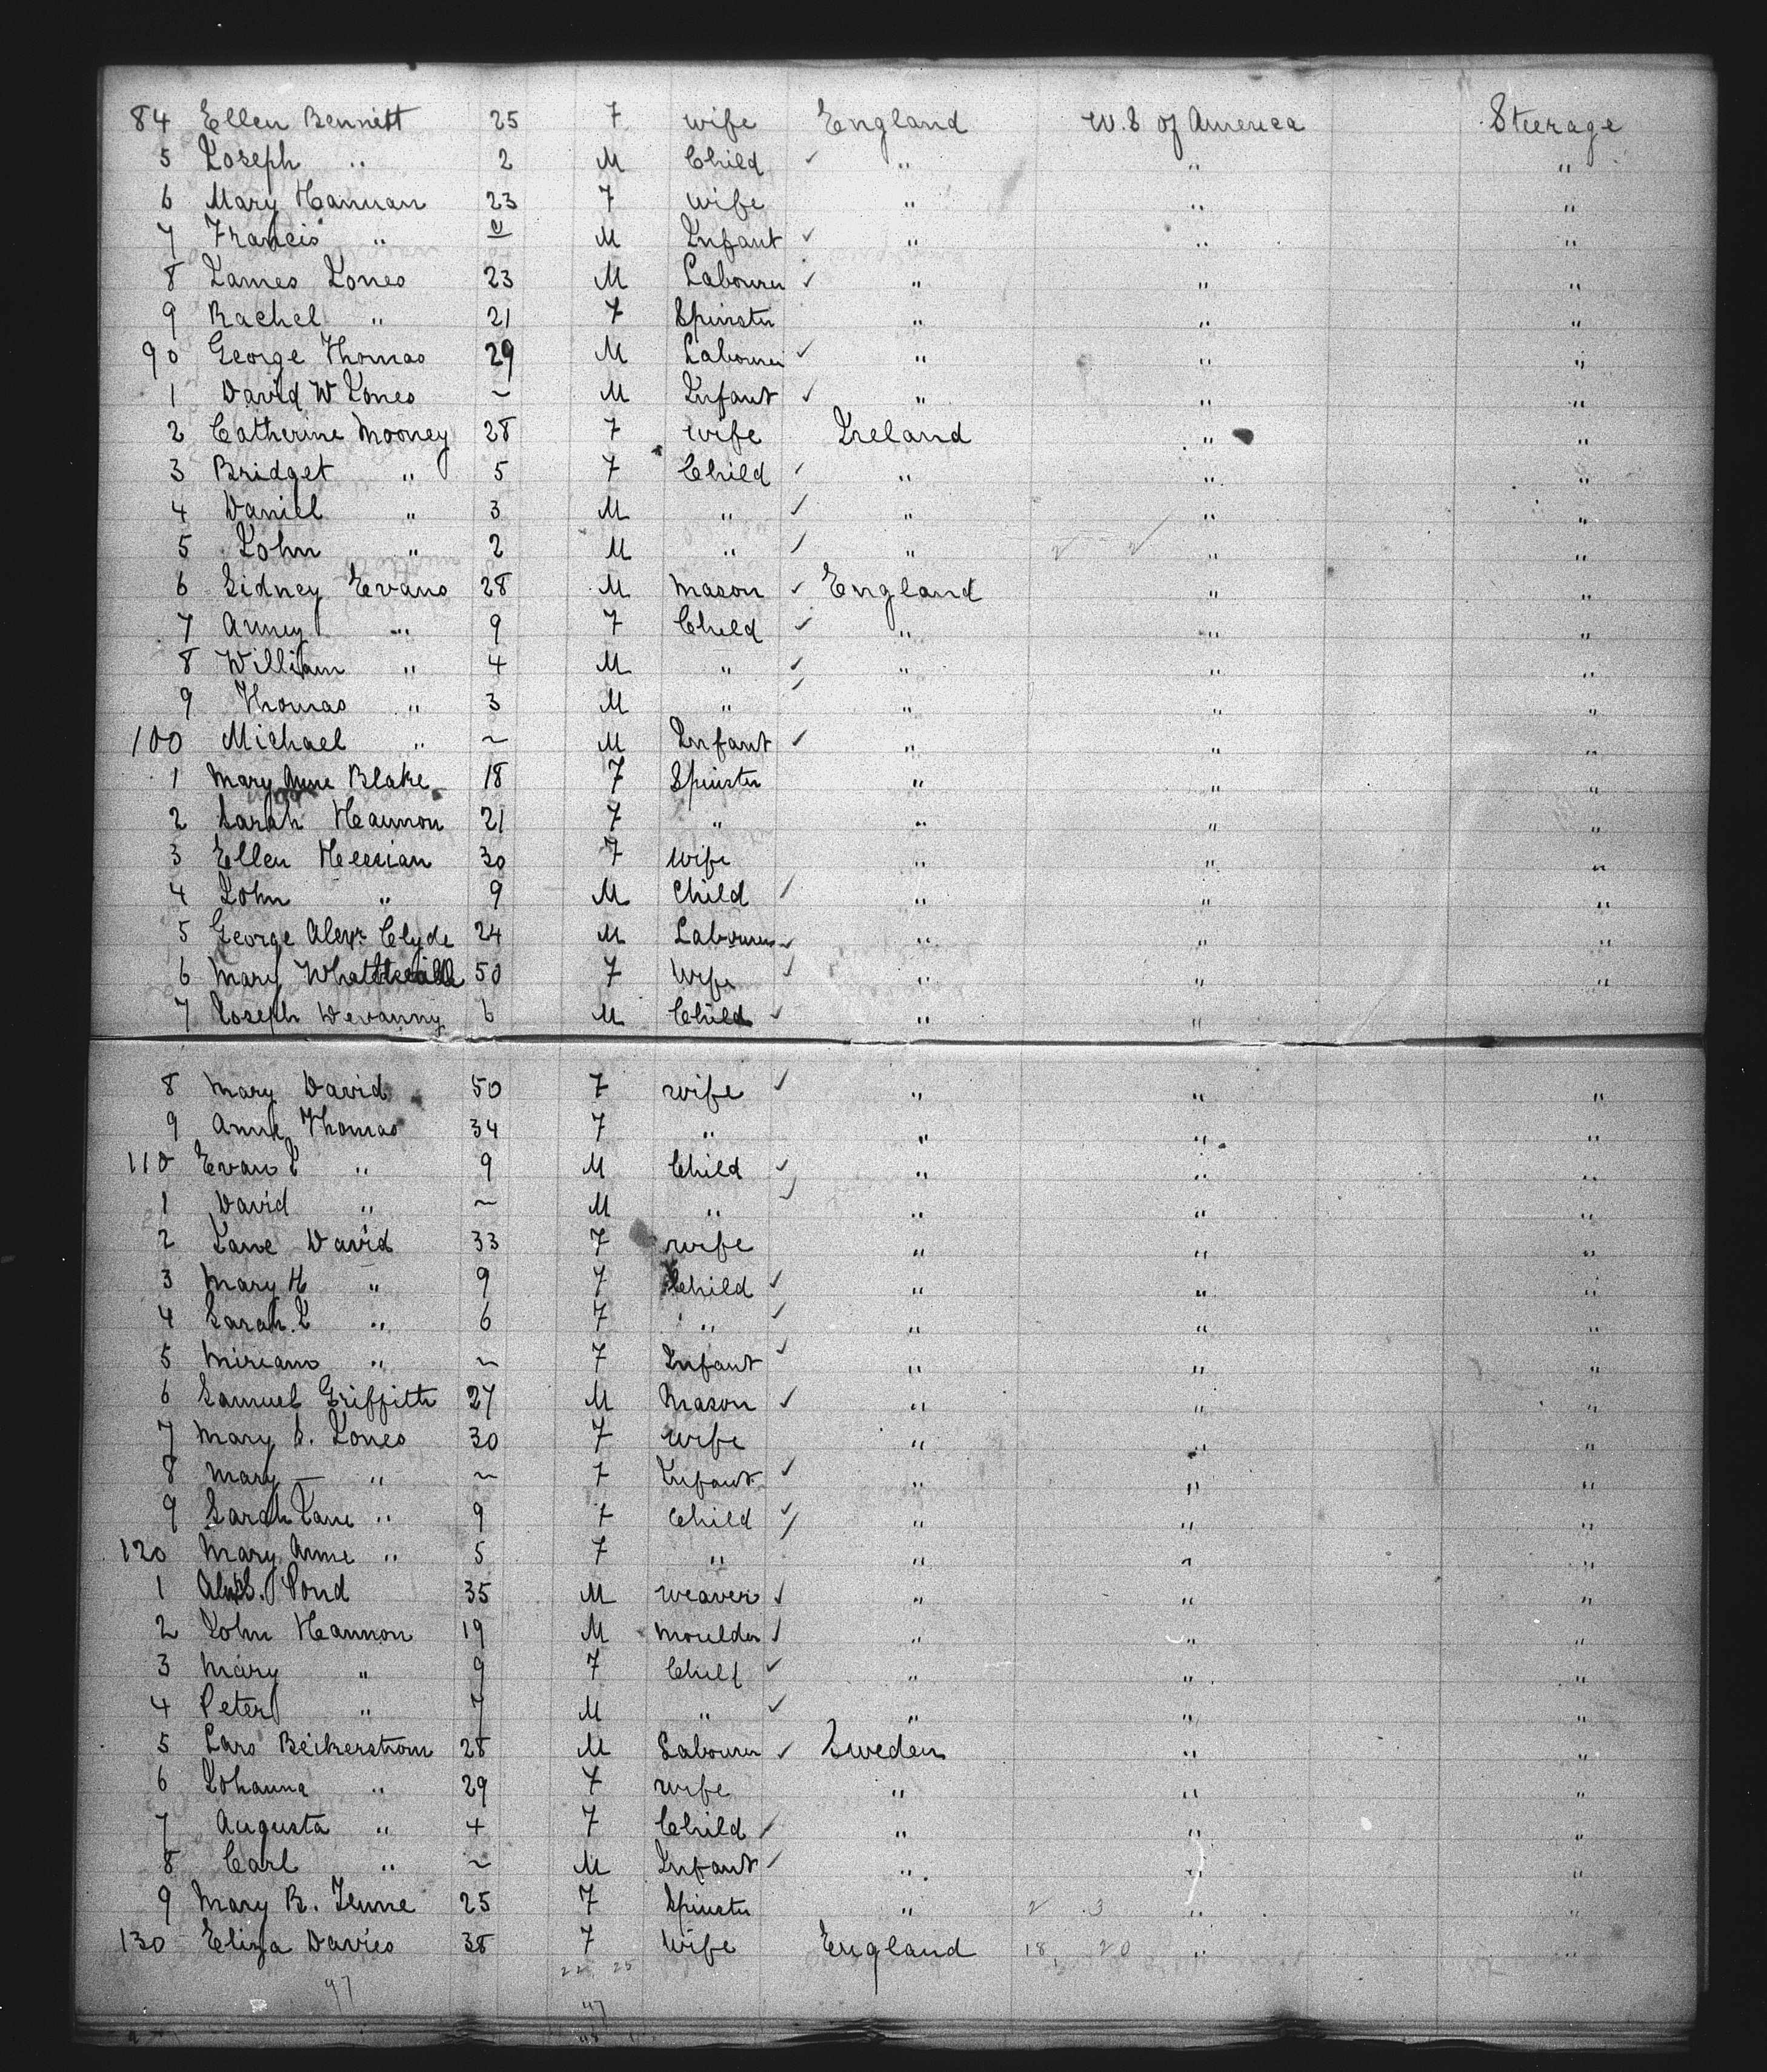 84 Ellen Bennett 25 F wife England U.S of America Steerage
5 Joseph " 2 M Child ✓ " " "
6 Mary Hannan 23 F wife " " "
7 Francis " M Infant ✓ " " "
8 James Jones 23 M Labourer ✓ " " "
9 Rachel " 21 F Spinster " " "
90 George Thomas 29 M Labourer ✓ " " "
1 David W Jones ~ M Infant ✓ " " "
2 Catherine Mooney 28 F wife Ireland " "
3 Bridget " 5 F Child ✓ " " "
4 Daniel " 3 M " ✓ " " "
5 John " 2 M " ✓ " " "
6 Sidney Evans 28 M Mason ✓ England " "
7 Anney " 9 F Child ✓ " " "
8 William " 4 M " ✓ " " "
9 Thomas " 3 M " ✓ " " "
100 Michael " ~ M Infant ✓ " " "
1 Mary Anne Blake 18 F Spinster " " "
2 Sarah Heannon 21 F " " " "
3 Ellen 30 F wife " " "
4 John " 9 M Child ✓ " " "
5 George Alexr Clyde 24 M Labourer ✓ " " "
6 Mary 50 F Wife ✓ " " "
7 Joseph Devanny 6 M Child ✓ " "
8 Mary David 50 F wife ✓ " " "
9 Anne Thomas 34 F " " " "
110 Evan J " 9 M Child ✓ " " "
1 David " ~ M " ✓ " " "
2 Jane David 33 F wife " " "
3 Mary H " 9 F Child ✓ " " "
4 Sarah J " 6 F " ✓ " " "
5 Miriam " ~ F Infant ✓ " " "
6 Samuel Griffith 27 M Mason ✓ " " "
7 Mary S. Jones 30 F wife " " "
8 Mary — " ~ F Infant ✓ " " "
9 Sarah Jane " 9 F Child ✓ " " "
120 Mary Anne " 5 F " " " "
1 Pond 35 M weaver ✓ " " "
2 John Heannon 19 M moulder ✓ " " "
3 Mary " 9 F Child ✓ " " "
4 Peter " 7 M " ✓ " " "
5 Lars Beikerstrom 28 M Labourer ✓ Sweden " "
6 Johanna " 29 F wife " " "
7 Augusta " 4 F Child ✓ " " "
8 Carl " ~ M Infant ✓ " " "
9 Mary B. 25 F Spinster " 2 3 " "
130 Eliza Davies 38 F Wife England 18 20 " "
97 22 25
47